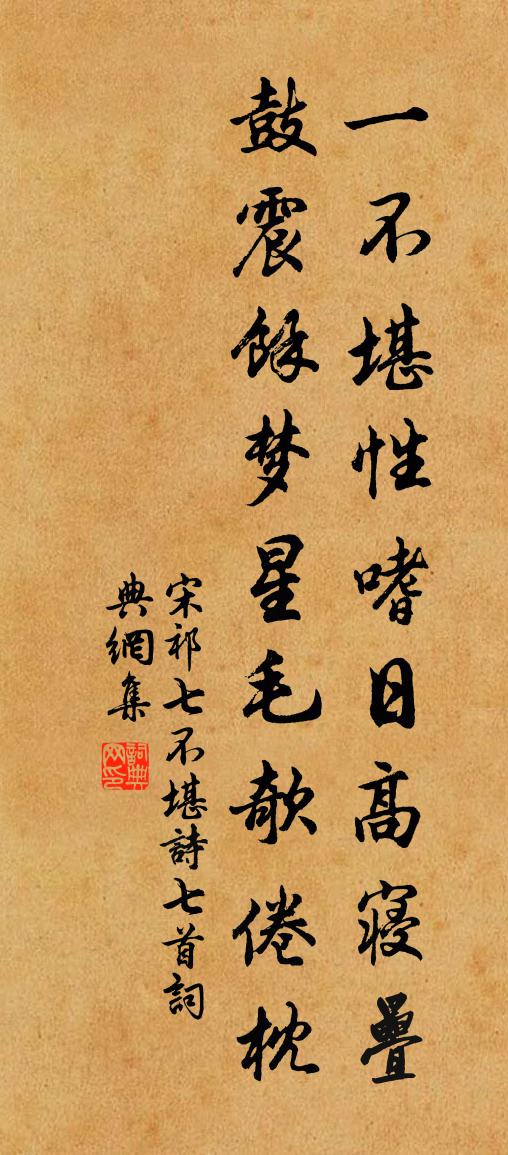 一不堪性嗜日高寝疊
鼓震餘梦星毛欹倦枕
宋祁七不堪詩七首詞
典網集
詞典
网印